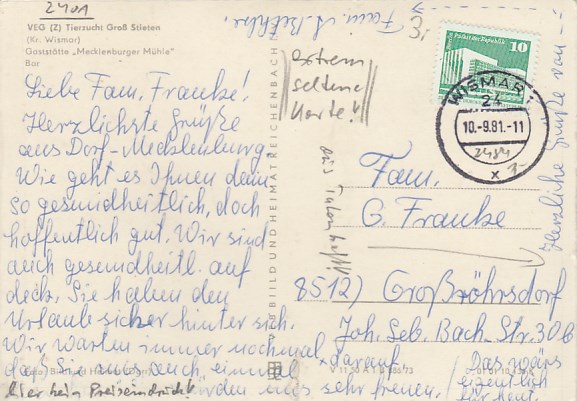 2401
VEG (Z) Tierzucht Groß Stieten
(Kr. Wismar)
Gaststätte „Mecklenburger Mühle"
Bar
Liebe Fam. Franke!
Herzlichste Grüße
aus Dorf-Mecklenburg.
Wie geht es Ihnen denn
so gesundheitlich, doch
hoffentlich gut. Wir sind
auch gesundheitl. auf
deck. Sie haben den
Urlaub sicher hinter sich.
Wir warten immer nochmal darauf
daß Sie uns auch einmal
würden uns sehr freuen.
Das wärs
eigentlich
für heut.
hier kein Preiseindruck!
extrem
seltene
Karte!!
3,-
VEB BILD UND HEIMAT REICHENBACH
Palast der Republik
10
WISMAR 1
24
10.-9.81.-11
x
Fam.
G. Franke
8512) Großröhrsdorf
Joh. Seb. Bach. Str. 30B
Herzliche Grüße von
Fam.